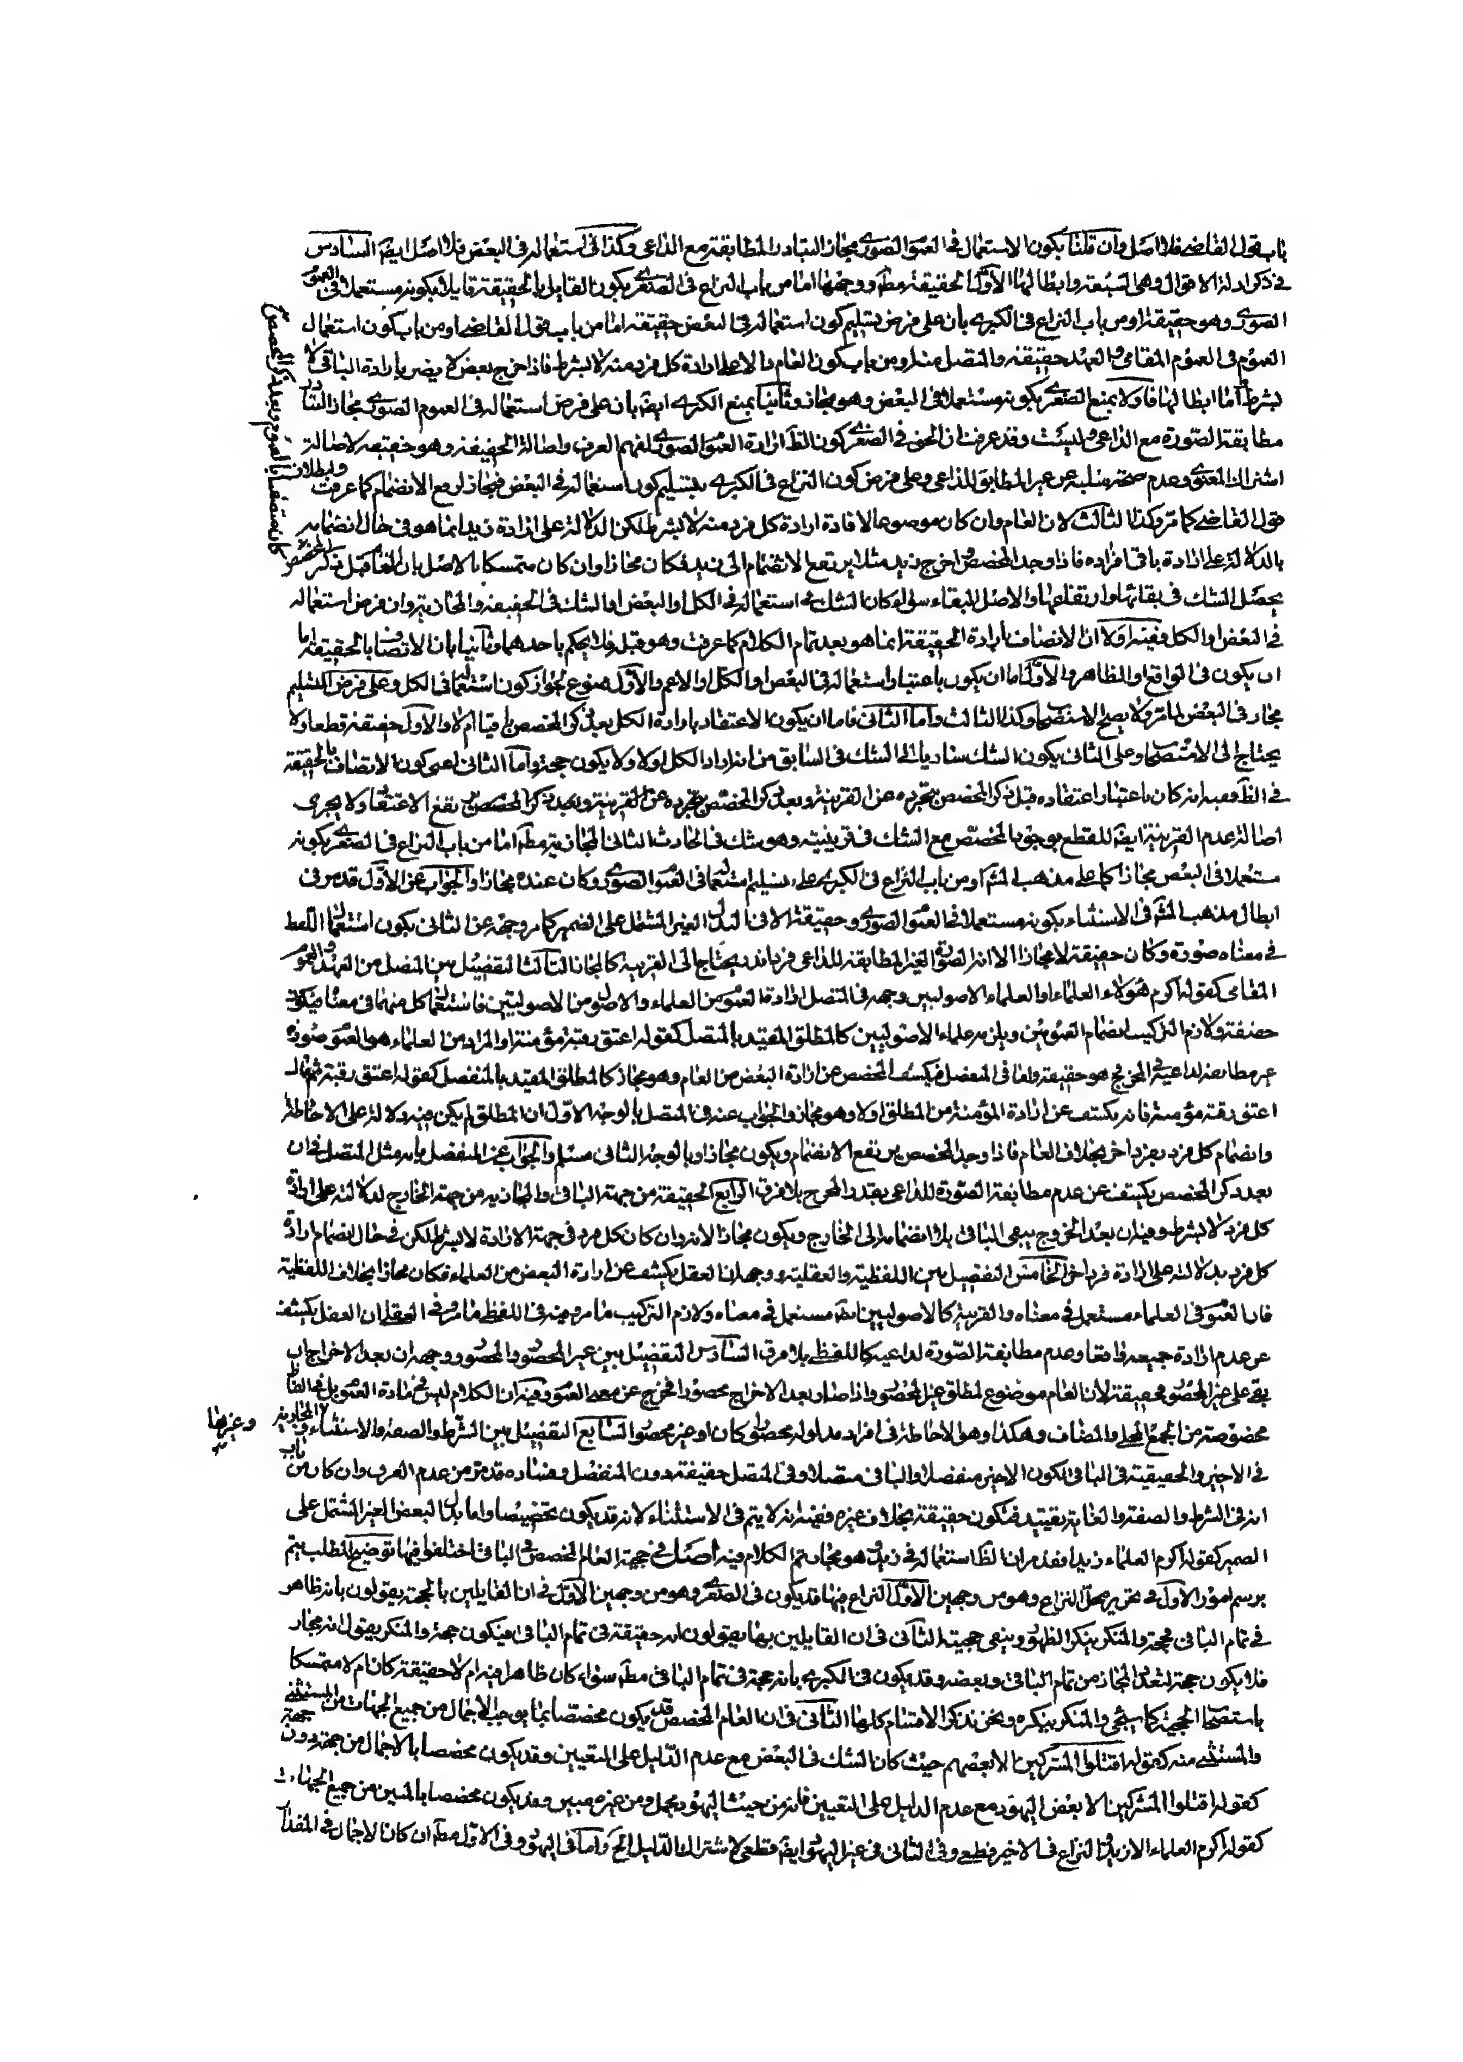 باب قول القاضى فلا اصل وان قلنا بكون الاستعمال فى العموم الصورى مجاز التبادر المطابقة مع الداعى وكذا فى استعماله فى البعض فلا اصل ايضا السادس
فى ذكر ادلة الاقوال وهى تسعة وابطالها الاول الحقيقة مطا ووجهها اما من باب النزاع فى الصغرى بكون القايل بالحقيقة قايلا بكونه مستعملا فى العموم
الصورى وهو حقيقة او من باب النزاع فى الكبرى بان على فرض تسليم كون استعماله فى البعض حقيقة اما من باب قول القاضى او من باب كون استعمال
العموم فى العموم المقامى والعهد حقيقة والمتصل منه او من باب كون العام دالا على ارادة كل فرد منه لا بشرط فاذا خرج بعض لا يضر بارادة الباقى لا
بشرط اما ابطالها فاولا بمنع الصغرى بكونه مستعملا فى البعض وهو مجاز وثانيا بمنع الكبرى ايضا بان على فرض استعماله فى العموم الصورى مجاز لتبادر
مطابقة الصورة مع الداعى وليست وقد عرفت ان الحق فى الصغرى كون الظ ارادة العموم الصورى لفهم العرف واصالة الحقيقة وهو حقيقة لاصالة
اشتراك المعنوى وعدم صحة سلبه عن غير المطابق للداعى وعلى فرض كون النزاع فى الكبرى بتسليم كون استعماله فى البعض فمجاز لرفع الانضمام كما عرفت ولبطلان
قول القاضى كما مر وكذا الثالث لان العام وان كان موضوعا لافادة ارادة كل فرد منه لا بشرط لكن الدلالة على ارادة زيد انما هو فى حال انضمامه
بالدلالة على ارادة باقى افراده فاذا وجد المخصص واخرج زيد مثلا يرتفع الانضمام الى زيد فكان مجازا وان كان متمسكا بالاصل بان العام قبل ذكر المخصص
كان متصفا بالعموم وبعد ذكر المخصص
يحصل الشك فى بقائها وارتفاعها والاصل البقاء سواء كان الشك فى استعماله فى الكل او البعض او الشك فى الحقيقة والمجازية وان فرض استعماله
فى البعض او الكل ففيه اولا ان الاتصاف بارادة الحقيقة انما هو بعد تمام الكلام كما عرفت وهو قبل فلا يحكم باحدهما وثانيا بان الاتصاف بالحقيقة اما
ان يكون فى الواقع او الظاهر والاول اما ان يكون باعتبار استعماله فى البعض او الكل او الاعم والاول ممنوع لجواز كون استعماله فى الكل وعلى فرض التسليم
مجاز فى البعض لما مر ولا يصلح الاستصحاب وكذا الثالث واما الثانى فاما ان يكون الاعتقاد بارادة الكل بعد ذكر المخصص باقيا ام لا والاول حقيقة قطعا ولا
يحتاج الى الاستصحاب وعلى الثانى يكون الشك ساريا الى الشك فى السابق من انه اراد الكل اولا ولا يكون حجة واما الثانى اعنى كون الاتصاف بالحقيقة
فى الظ ففيه انه كان باعتبار اعتقاده قبل ذكر المخصص بتجرده عن القرينة وبعد ذكر المخصص يرتفع الاعتقاد ولا يجرى
اصالة عدم القرينة ايضا للقطع بوجود المخصص مع الشك فى قرينيته وهو شك فى الحادث الثانى المجازية مطا اما من باب النزاع فى الصغرى بكونه
مستعملا فى البعض مجازا كما على مذهب المشه او من باب النزاع فى الكبرى على تسليم استعماله فى العموم الصورى وكان عنده مجازا والجواب عن الاول قد مر فى
ابطال مذهب المشه فى الاستثناء بكونه مستعملا فى العموم الصورى وحقيقة الا فى البدل الغير المشتمل على الضمير كما مر وجهه عن الثانى بكون استعمال اللفظ
فى معناه صورة وكان حقيقة لا مجازا الا ان الصورة الغير المطابقة للداعى فربما يحتاج الى القرينة كالمجاز الثالث التفصيل بين المتصل من العهد والعموم
المقامى كقوله اكرم هؤلاء العلماء او العلماء الاصوليين وجهه فى المتصل ارادة العموم من العلماء والاصول من الاصوليين فاستعمال كل منهما فى معناه فيكون
حقيقة ولازم التركيب انضمام العمومين ويلزمه علماء الاصوليين كالمطلق المقيد بالمتصل كقوله اعتق رقبة مؤمنة او المراد من العلماء هو العموم صورة
غير مطابقة لداعيه فى المخرج هو حقيقة واما فى المنفصل فيكشف المخصص عن ارادة البعض من العام وهو مجاز كالمطلق المقيد بالمنفصل كقوله اعتق رقبة ثم قال
اعتق رقبة مؤمنة فانه يكشف عن ارادة المؤمنة من المطلق اولا وهو مجاز والجواب عنه فى المتصل بالوجه الاول ان المطلق لم يكن فيه دلالة على الاحاطة
وانضمام كل فرد بفرد اخر بخلاف العام فاذا وجد المخصص يرتفع الانضمام ويكون مجازا وبالوجه الثانى مسلم والجواب عن المنفصل بانه مثل المتصل فى ان
بعد ذكر المخصص يكشف عن عدم مطابقة الصورة للداعى بقدر المخرج بلا فرق الرابع الحقيقة من جهة الباقى والمجازية من جهة الخارج لدلالته على ارادة
كل فرد لا بشرط وفيه ان بعد الخروج يبقى الباقى بلا انضمامه الى الخارج ويكون مجازا لانه وان كان كل فرد فى جهة الارادة لا بشرط لكن فى حال انضمام ارادة
كل فرد بدلالته على ارادة فرد اخر الخامس التفصيل بين اللفظية والعقلية ووجهه ان العقل يكشف عن ارادة البعض من العلماء فكان مجازا بخلاف اللفظية
فان العموم فى العلماء مستعمل فى معناه والقرينة كالاصوليين ايضا مستعمل فى معناه ولازم التركيب ما مر وفيه فى اللفظ ما مر وفى العقلى ان العقل يكشف
عن عدم ارادة جميعه واقعا وعدم مطابقة الصورة لداعيه كاللفظ بلا فرق السادس التفصيل بين غير المحصور والمحصور ووجهه ان بعد الاخراج ان
بقى على غير المحصور فحقيقة لان العام موضوع لمطلق غير المحصور واذا صار بعد الاخراج محصورا فخرج عن معنى العموم وفيه ان الكلام ليس فى مادة العموم بل فى الفاظ
مخصوصة من الجمع المحلى والمضاف وهكذا وهو الاحاطة فى افراد مدلوله محصورا كان او غير محصور السابع التفصيل بين الشرط والصفة والاستثناء وغيرها المجازية
فى الاخير والحقيقية فى الباقى لكون الاخير منفصلا والباقى متصلا وفى المتصل حقيقة دون المنفصل وفساده قد مر من عدم الفرق وان كان من باب
انه فى الشرط والصفة والغاية تقييد فتكون حقيقة بخلاف غيره ففيه انه لا يتم فى الاستثناء لانه قد يكون تخصيصا واما بدل البعض الغير المشتمل على
الضمير كقوله اكرم العلماء زيدا فقد مر ان الظ استعماله فى زيد وهو مجاز تم الكلام فيه اصل فى حجية العام المخصص فى الباقى اختلفوا فيها توضيح المطلب يتم
برسم امور الاول فى تحرير محل النزاع وهو من وجهين الاول النزاع فيها قد يكون فى الصغرى وهو من وجهين الاول فى ان القايلين بالحجية يقولون بانه ظاهر
فى تمام الباقى فحجة والمنكر ينكر الظهور وينفى حجيته الثانى فى ان القايلين بها يقولون انه حقيقة فى تمام الباقى فيكون حجة والمنكر يقول انه مجاز
فلا يكون حجة لتعدد المجاز من تمام الباقى وبعضه وقد يكون فى الكبرى بانه حجة فى تمام الباقى مطا سواء كان ظاهرا فيه ام لا حقيقة كان ام لا متمسكا
باستصحاب الحجية كما سيجئ والمنكر ينكره ونحن نذكر الاقسام كلها الثانى فى ان العام المخصص قد يكون مخصصا بما يوجب الاجمال من جميع الجهات من المستثنى
والمستثنى منه كقوله اقتلوا المشركين الا بعضهم حيث كان الشك فى البعض مع عدم الدليل على التعيين وقد يكون مخصصا بالاجمال من جهة دون جهة
كقوله اقتلوا المشركين الا بعض اليهود مع عدم الدليل على التعيين فانه من حيث اليهود مجمل ومن غيره مبين وقد يكون مخصصا بالمبين من جميع الجهات
كقوله اكرم العلماء الا زيدا والنزاع فى الاخير قطعى وفى الثانى فى غير اليهود ايضا قطعى لاشتراك الدليل الخ واما فى اليهود وفى الاول مطا ان كان الاجمال فى المقدار